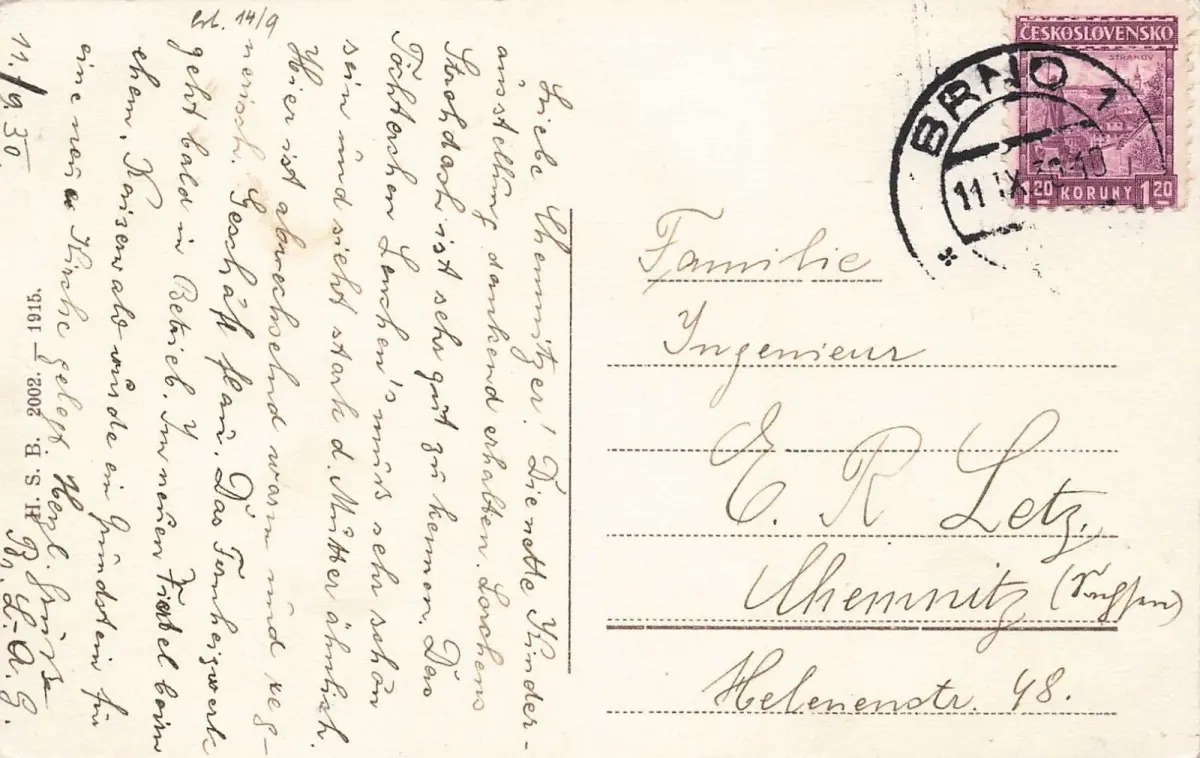 erh. 14/9
11./9 30
Liebe Chemnitzer! Die nette Kinder-
ausstellung dankend erhalten. Lorchens
ist sehr gut zu kennen. Das
Töchterchen Lenchen's muss sehr schön
sein und sieht stark d. Mutter ähnlich.
Hier ist abwechselnd warm und reg-
nerisch. Geschäft flau. Das Fernheizwerk
geht bald in Betrieb. Im neuen beim
ehem. Kaiserwald wurde ein Grundstein für
eine neue Kirche gelegt. Herzl. Grüsse
L.-A. G.
H. S. B. 2002. – 1915.
ČESKOSLOVENSKO
STRAHOV
1.20 KORUNY 1.20
BRNO 1
11.IX.30-10
Familie
Ingenieur
E. R. Letz,
Chemnitz (Sachsen)
Helenenstr. 48.